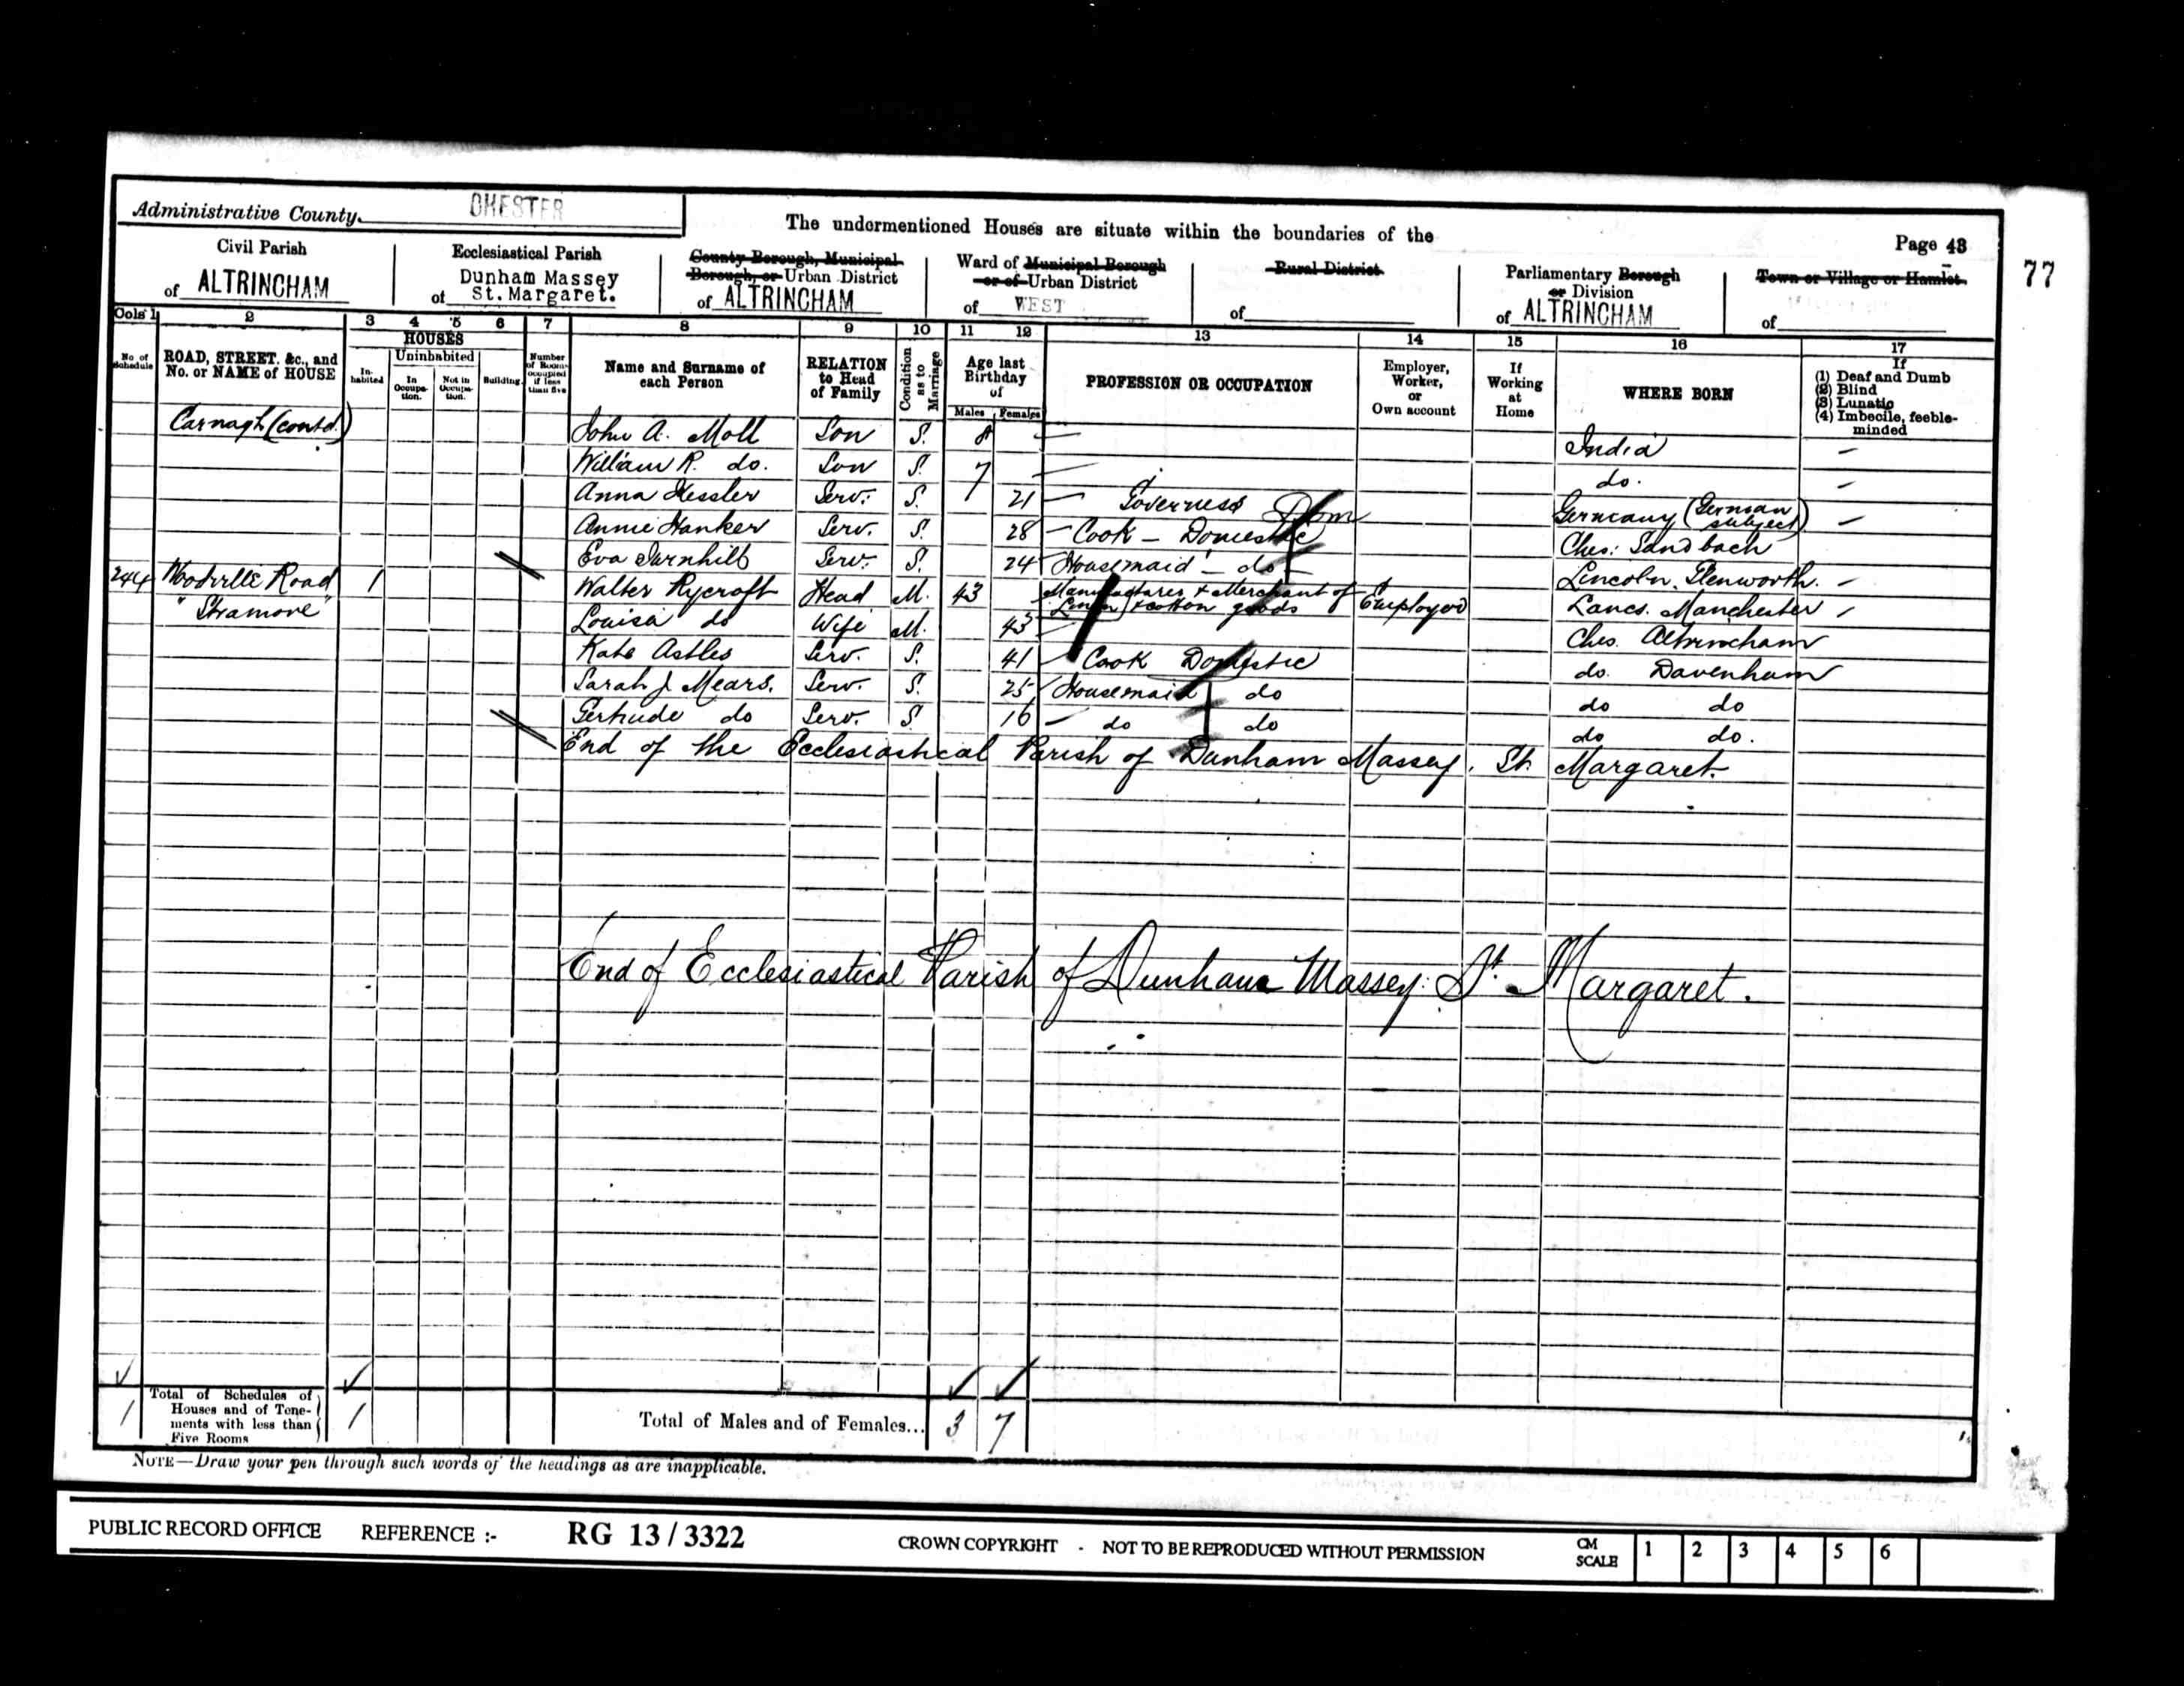 Administrative County. CHESTER
The undermentioned Houses are situate within the boundaries of the
Page 43
77
Civil Parish
of ALTRINCHAM
Ecclesiastical Parish
Dunham Massey
of St. Margaret.
County Borough, Municipal
Borough, or Urban District
of ALTRINCHAM
Ward of Municipal Borough
or of Urban District
of WEST
Rural District
of
Parliamentary Borough
or Division
of ALTRINCHAM
Town or Village or Hamlet
of
Cols 1 2 3 4 5 6 7 8 9 10 11 12 13 14 15 16 17
No. of Schedule
ROAD, STREET, &c., and No. or NAME of HOUSE
HOUSES
In-habited
Uninhabited
In Occupa-tion.
Not in Occupa-tion.
Building.
Number of Rooms occupied if less than five
Name and Surname of each Person
RELATION to Head of Family
Condition as to Marriage
Age last Birthday of
Males Females
PROFESSION OR OCCUPATION
Employer, Worker, or Own account
If Working at Home
WHERE BORN
If
(1) Deaf and Dumb
(2) Blind
(3) Lunatic
(4) Imbecile, feeble-minded
Carnagh (contd.) John A. Moll Son S. 8 — India —
William R. do. Son S. 7 — do. —
Anna Kessler Serv: S. 21 — Governess Dom Germany (German subject) —
Annie Hanker Serv. S. 28 — Cook — Domestic Ches: Sandbach
Eva Serv: S. 24 Housemaid — do — Lincoln. Glenworth. —
244 Woodville Road, 1 Walter Rycroft Head M. 43 Manufacturer & Merchant of Linen & cotton goods Employer Lancs. Manchester
"Stramore" Louisa do Wife M. 43 — Ches. Altrincham
Kate Astles Serv. S. 41 Cook Domestic do. Davenham
Sarah J Mears. Serv. S. 25 Housemaid do do do
Gertrude do Serv. S 16 — do do do do.
End of the Ecclesiastical Parish of Dunham Massey. St. Margaret.
End of Ecclesiastical Parish of Dunham Massey: St. Margaret.
1 Total of Schedules of Houses and of Tene-ments with less than Five Rooms 1 Total of Males and of Females... 3 7
NOTE—Draw your pen through such words of the headings as are inapplicable.
PUBLIC RECORD OFFICE REFERENCE :- RG 13 / 3322 CROWN COPYRIGHT - NOT TO BE REPRODUCED WITHOUT PERMISSION CM SCALE 1 2 3 4 5 6